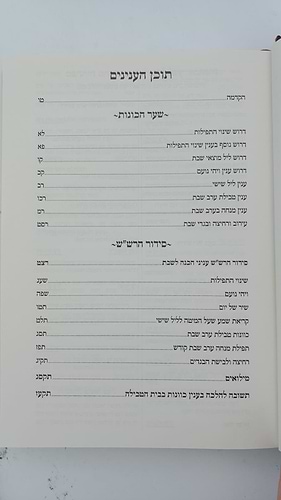 תוכן הענינים
הקדמה טו
~שער הכונות~
דרוש שינוי התפילות לא
דרוש נוסף בענין שינוי התפילות פא
דרוש ליל מוצאי שבת קו
דרוש ענין ויהי נועם קכ
ענין ליל שישי רב
ענין טבילת ערב שבת רכו
ענין מנחה בערב שבת רס
עירוב ורחיצה ובגדי שבת רסט
~סידור הרש"ש~
סידור הרש"ש עניני הכנה לשבת רצט
שינוי התפילות שעג
ויהי נועם שפה
שיר של יום תמו
קריאת שמע שעל המיטה לליל שישי תלט
כוונות טבילת ערב שבת תסג
תפילת מנחה ערב שבת קודש תפז
רחיצה ולבישת הבגדים תקינ
מילואים תקסג
תשובה להלכה בענין כוונות בבית הטבילה תקעז